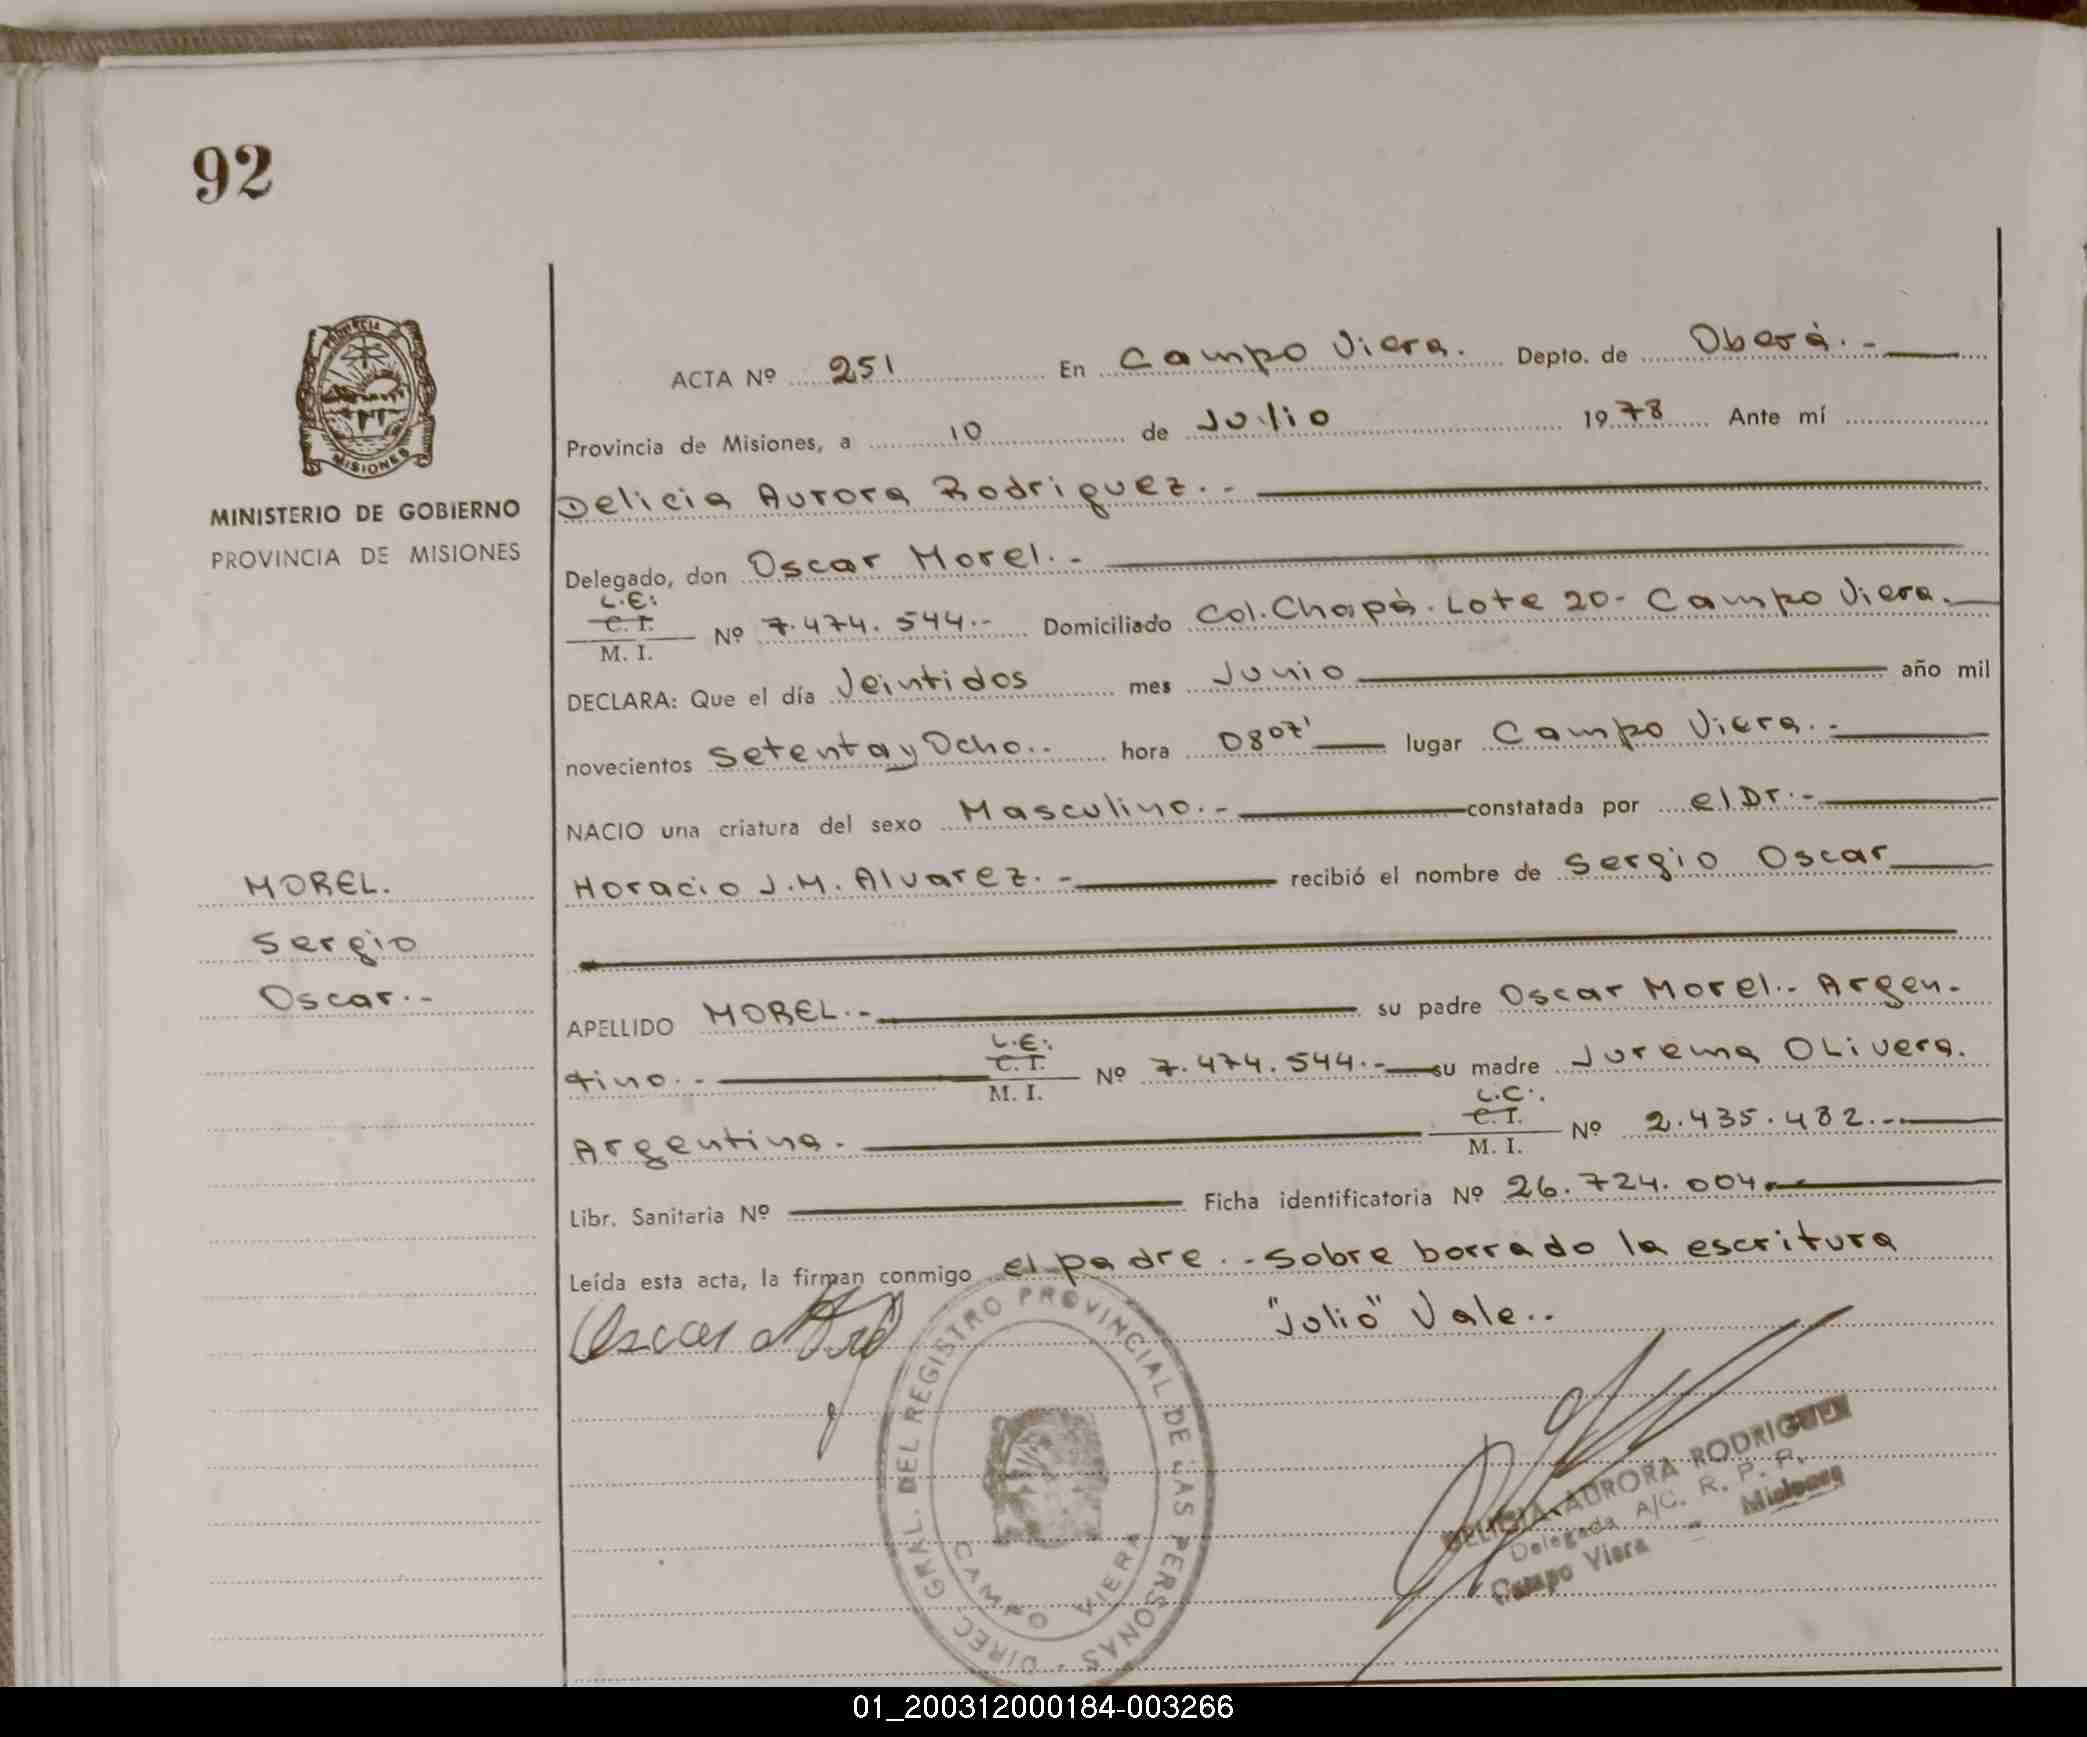 92
PROVINCIA
MISIONES
MINISTERIO DE GOBIERNO
PROVINCIA DE MISIONES
ACTA Nº 251 En Campo Viera. Depto. de Oberá.-
Provincia de Misiones, a 10 de Julio 1978 Ante mí
Delicia Aurora Rodriguez.-
Delegado, don Oscar Morel.-
L.E:
C. I.
M. I.
Nº 7.474.544.- Domiciliado Col. Chapá. Lote 20- Campo Viera.
DECLARA: Que el día Veintidos mes Junio año mil
novecientos Setenta y Ocho.. hora 0807' lugar Campo Viera.-
NACIO una criatura del sexo Masculino.- constatada por el Dr.-
Horacio J.M. Alvarez.- recibió el nombre de Sergio Oscar
MOREL.
Sergio
Oscar.-
APELLIDO MOREL.- su padre Oscar Morel.- Argen-
L.E:
C. I.
M. I.
tino.- Nº 7.474.544.- su madre Jurema OLivera.
L.C:.
C. I.
M. I.
Argentina. Nº 2.435.482.-
Libr. Sanitaria Nº Ficha identificatoria Nº 26.724.004.
Leída esta acta, la firman conmigo el padre.- Sobre borrado la escritura
"Julio" Vale..
Oscar Morel
DIREC. GRAL. DEL REGISTRO PROVINCIAL DE LAS PERSONAS
CAMPO VIERA
DELICIA AURORA RODRIGUEZ
Delegada A/C. R. P. P.
Campo Viera - Misiones
01_200312000184-003266